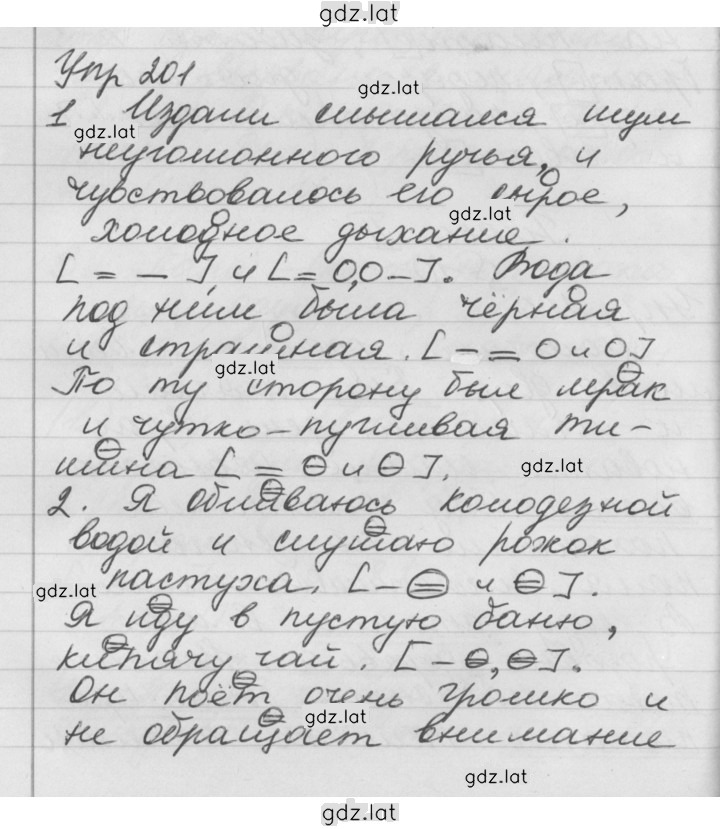 gdz.lat
Упр 201
gdz.lat
1 Издали слышался шум
gdz.lat
неугомонного ручья, и
чувствовалось его сырое,
gdz.lat
холодное дыхание.
[ = — ], и [ = О, О — ]. Вода
под ним была чёрная
и страшная. [ — = О и О ]
gdz.lat
По ту сторону был мрак
и чутко-пугливая ти-
шина [ = ⊖ и ⊖ ].
gdz.lat
2. Я обливаюсь колодезной
водой и слушаю рожок
gdz.lat
пастуха. [ — ⊜ и ⊜ ].
Я иду в пустую баню,
кипячу чай. [ — ⊖, ⊖ ].
Он поёт очень громко и
gdz.lat
не обращает внимание
gdz.lat
gdz.lat